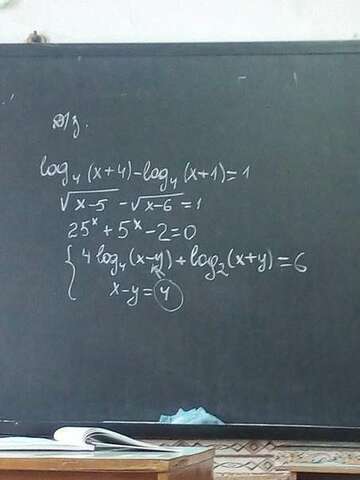 Д/з.
log₄(x+4)-log₄(x+1)=1
√x-5 -√x-6=1
25ˣ+5ˣ-2=0
{4log₄(x-y)+log₂(x+y)=6
x-y=4